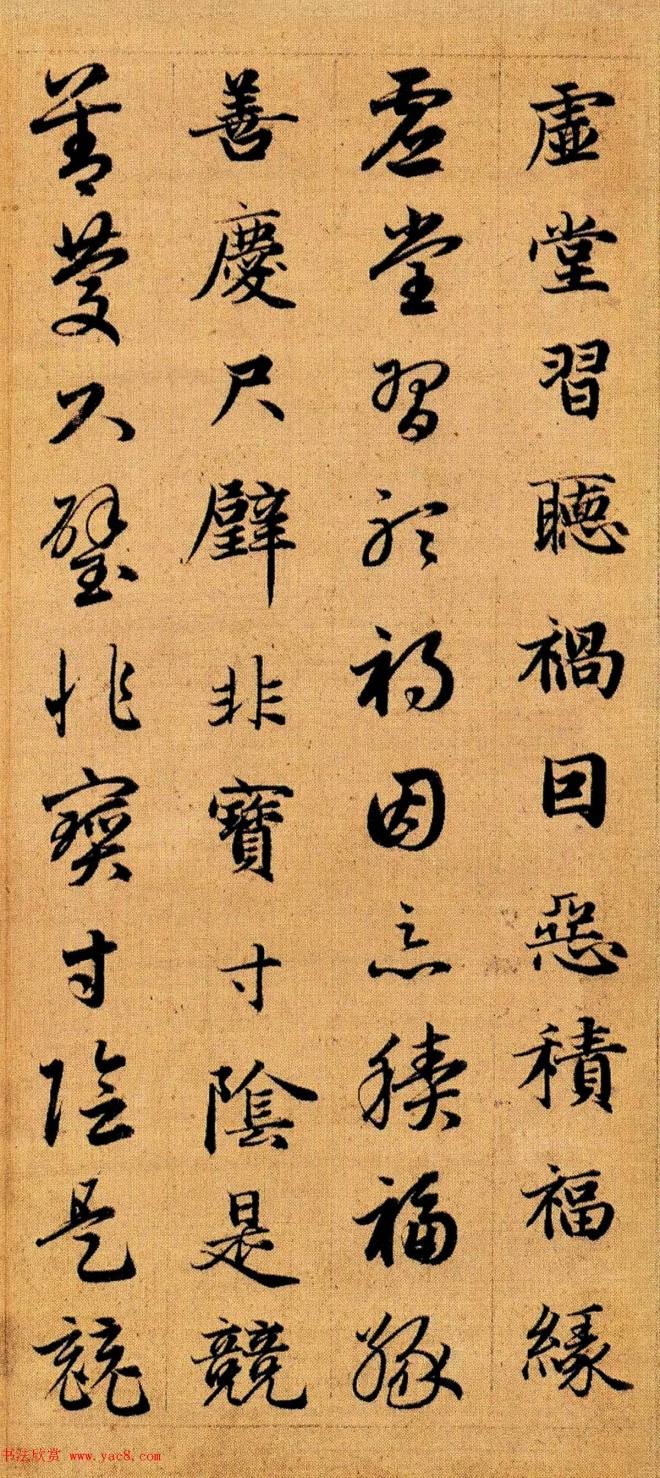 虛堂習聽禍因惡積福緣
虛堂習聽禍因惡積福緣
善慶尺璧非寶寸陰是競
善慶尺璧非寶寸陰是競
书法欣赏 www.yac8.com